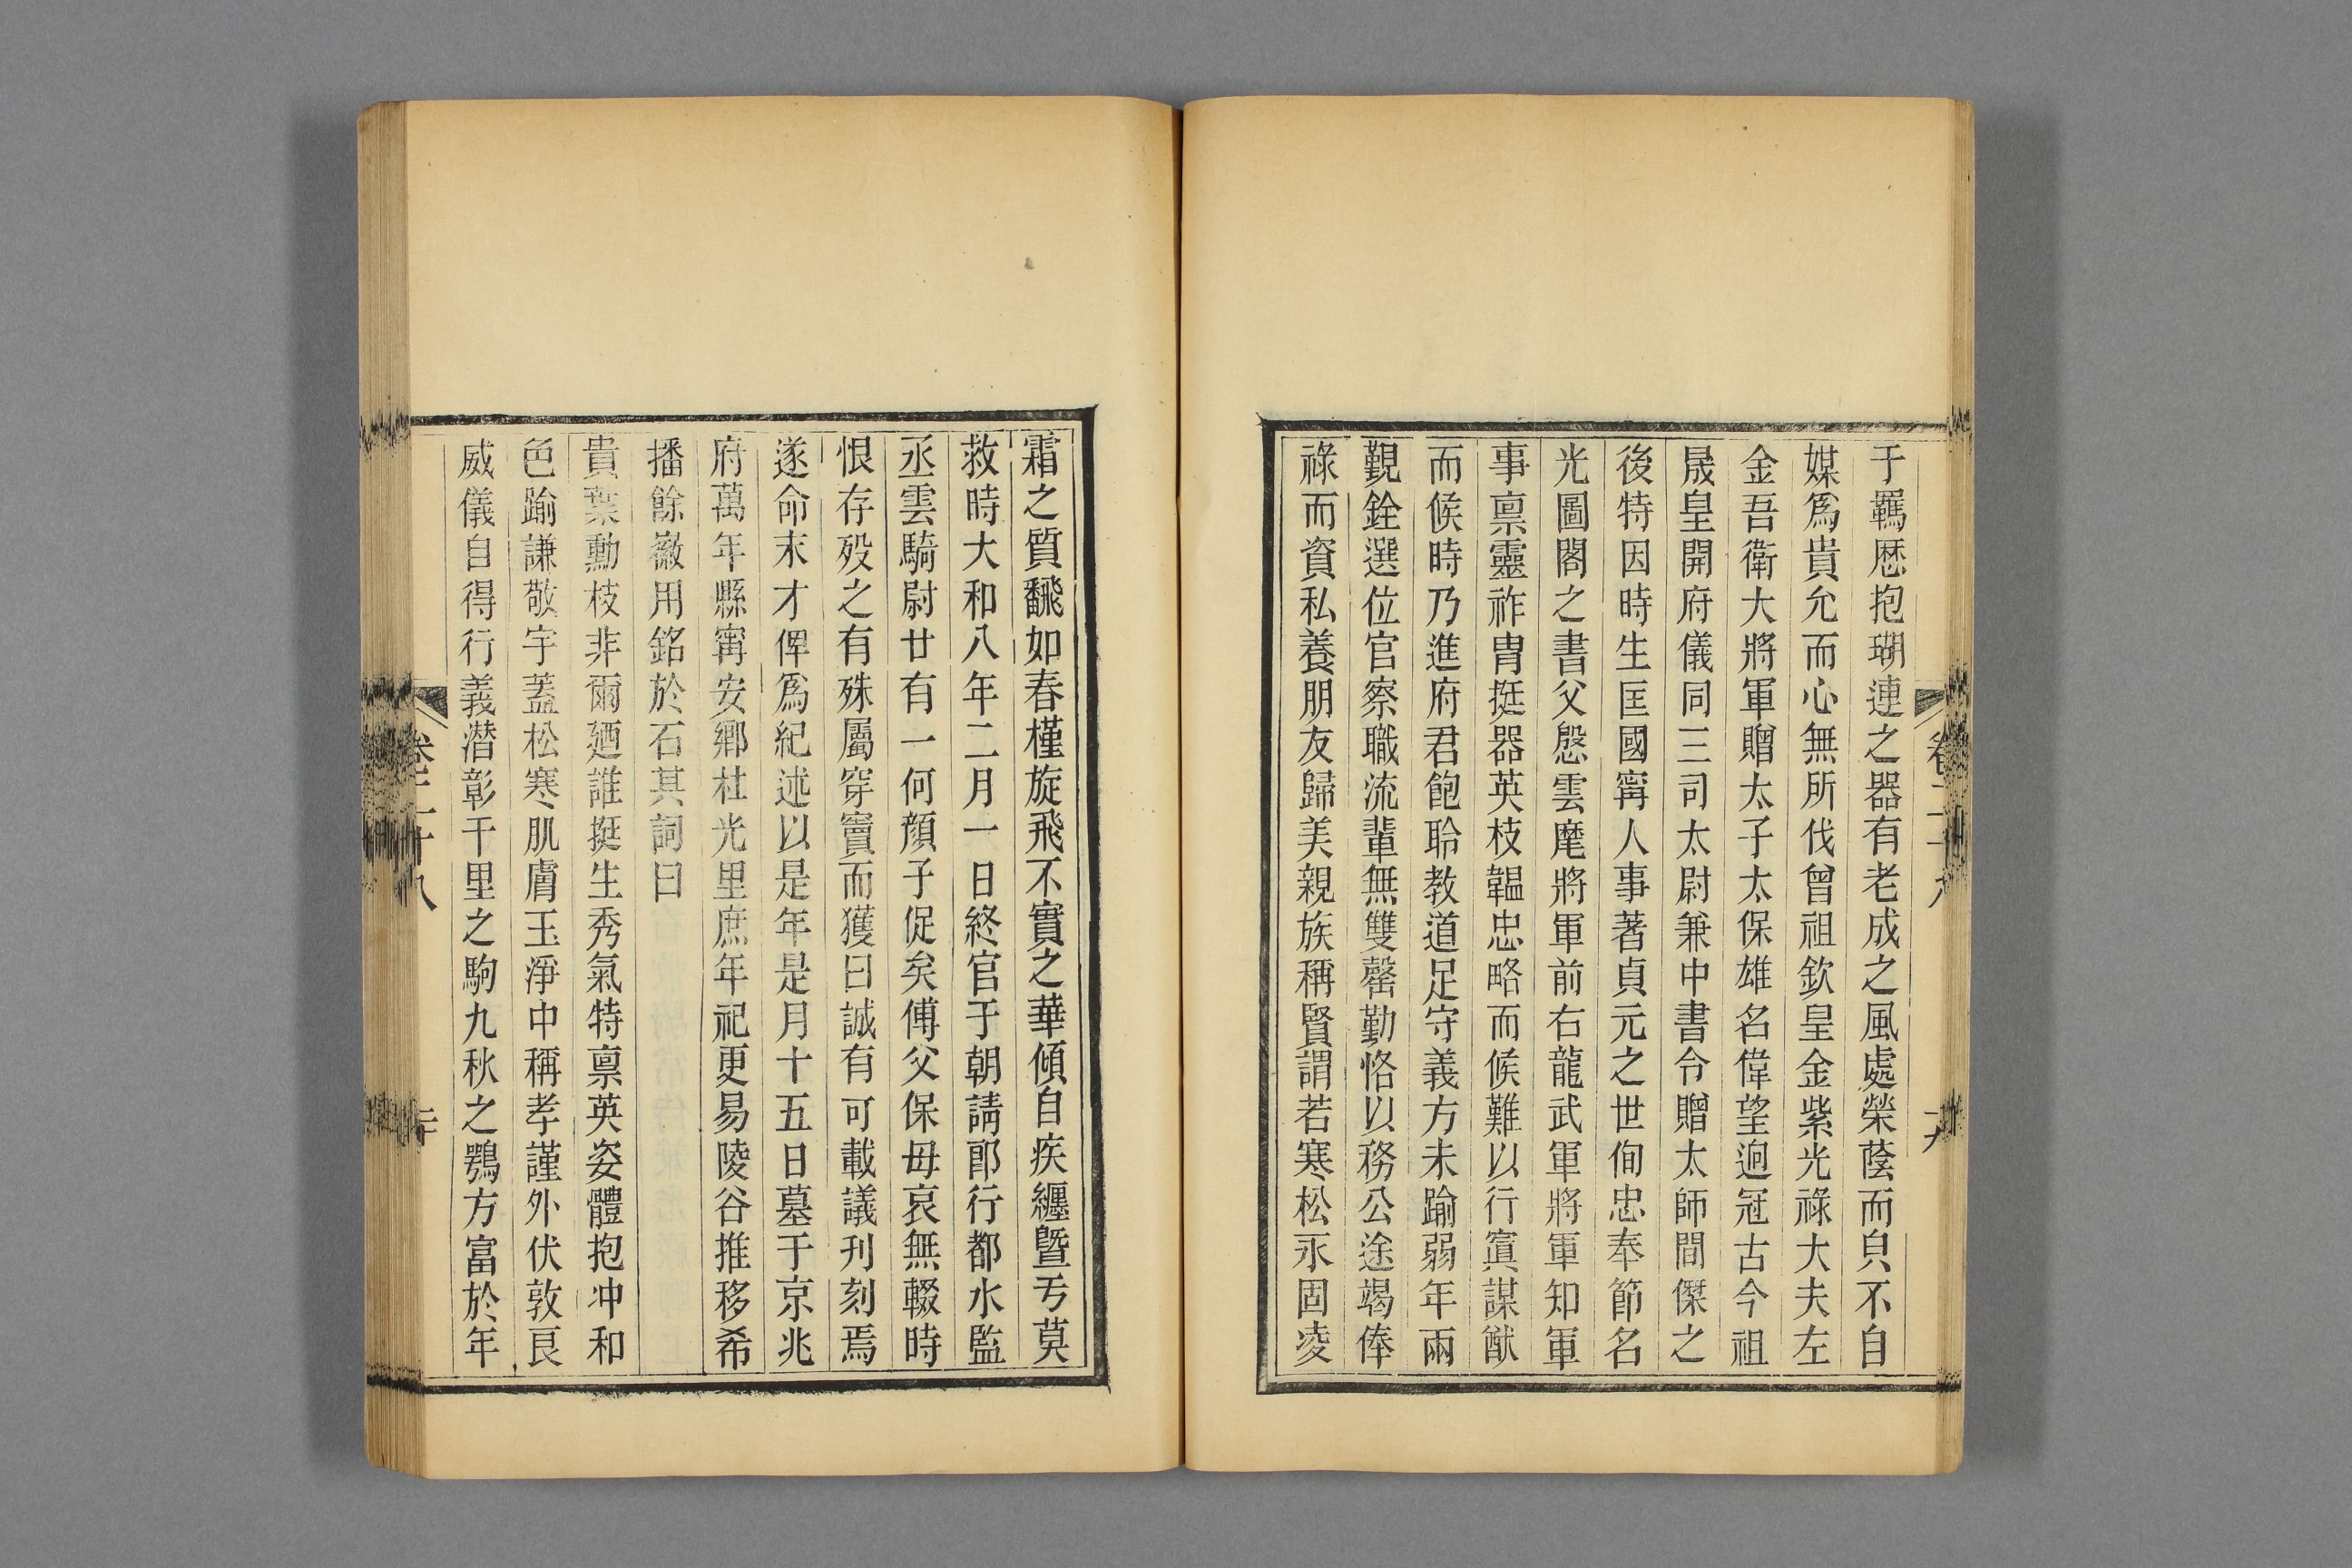 于羈㞐抱瑚連之器有老成之風處榮蔭而㒵不自
媒爲貴允而心無所伐曾祖欽皇金紫光祿大夫左
金吾衛大將軍贈太子太保雄名偉望迥冠古今祖
晟皇開府儀同三司太尉兼中書令贈太師間傑之
後特因時生匡國寗人事著貞元之世侚忠奉節名
光圖閣之書父慇雲麾將軍前右龍武軍將軍知軍
事禀靈祚胄挺器英枝韞忠略而候難以行寘謀猷
而候時乃進府君飽聆教道足守義方未踰弱年兩
覲銓選位官察職流輩無雙罄勤恪以務公途竭俸
祿而資私養朋友歸美親族稱賢謂若寒松永固凌
卷二十八
十九
霜之質飜如春槿旋飛不實之華傾自疾纏曁丂莫
救時大和八年二月一日終官于朝請郎行都水監
丞雲騎尉廿有一何顔子促矣傅父保毋哀無輟時
恨存殁之有殊屬穿竇而獲曰誠有可載議刋刻焉
遂命末才俾爲紀述以是年是月十五日墓于京兆
府萬年縣寗安鄉杜光里庶年祀更易陵谷推移希
播餘徽用銘於石其詞曰
貴葉勳枝非爾廼誰挺生秀氣特禀英姿體抱冲和
色踰謙敬宇蓋松寒肌膚玉淨中稱孝謹外伏敦良
威儀自得行義潛彰千里之駒九秋之鶚方富於年
卷二十八
二十